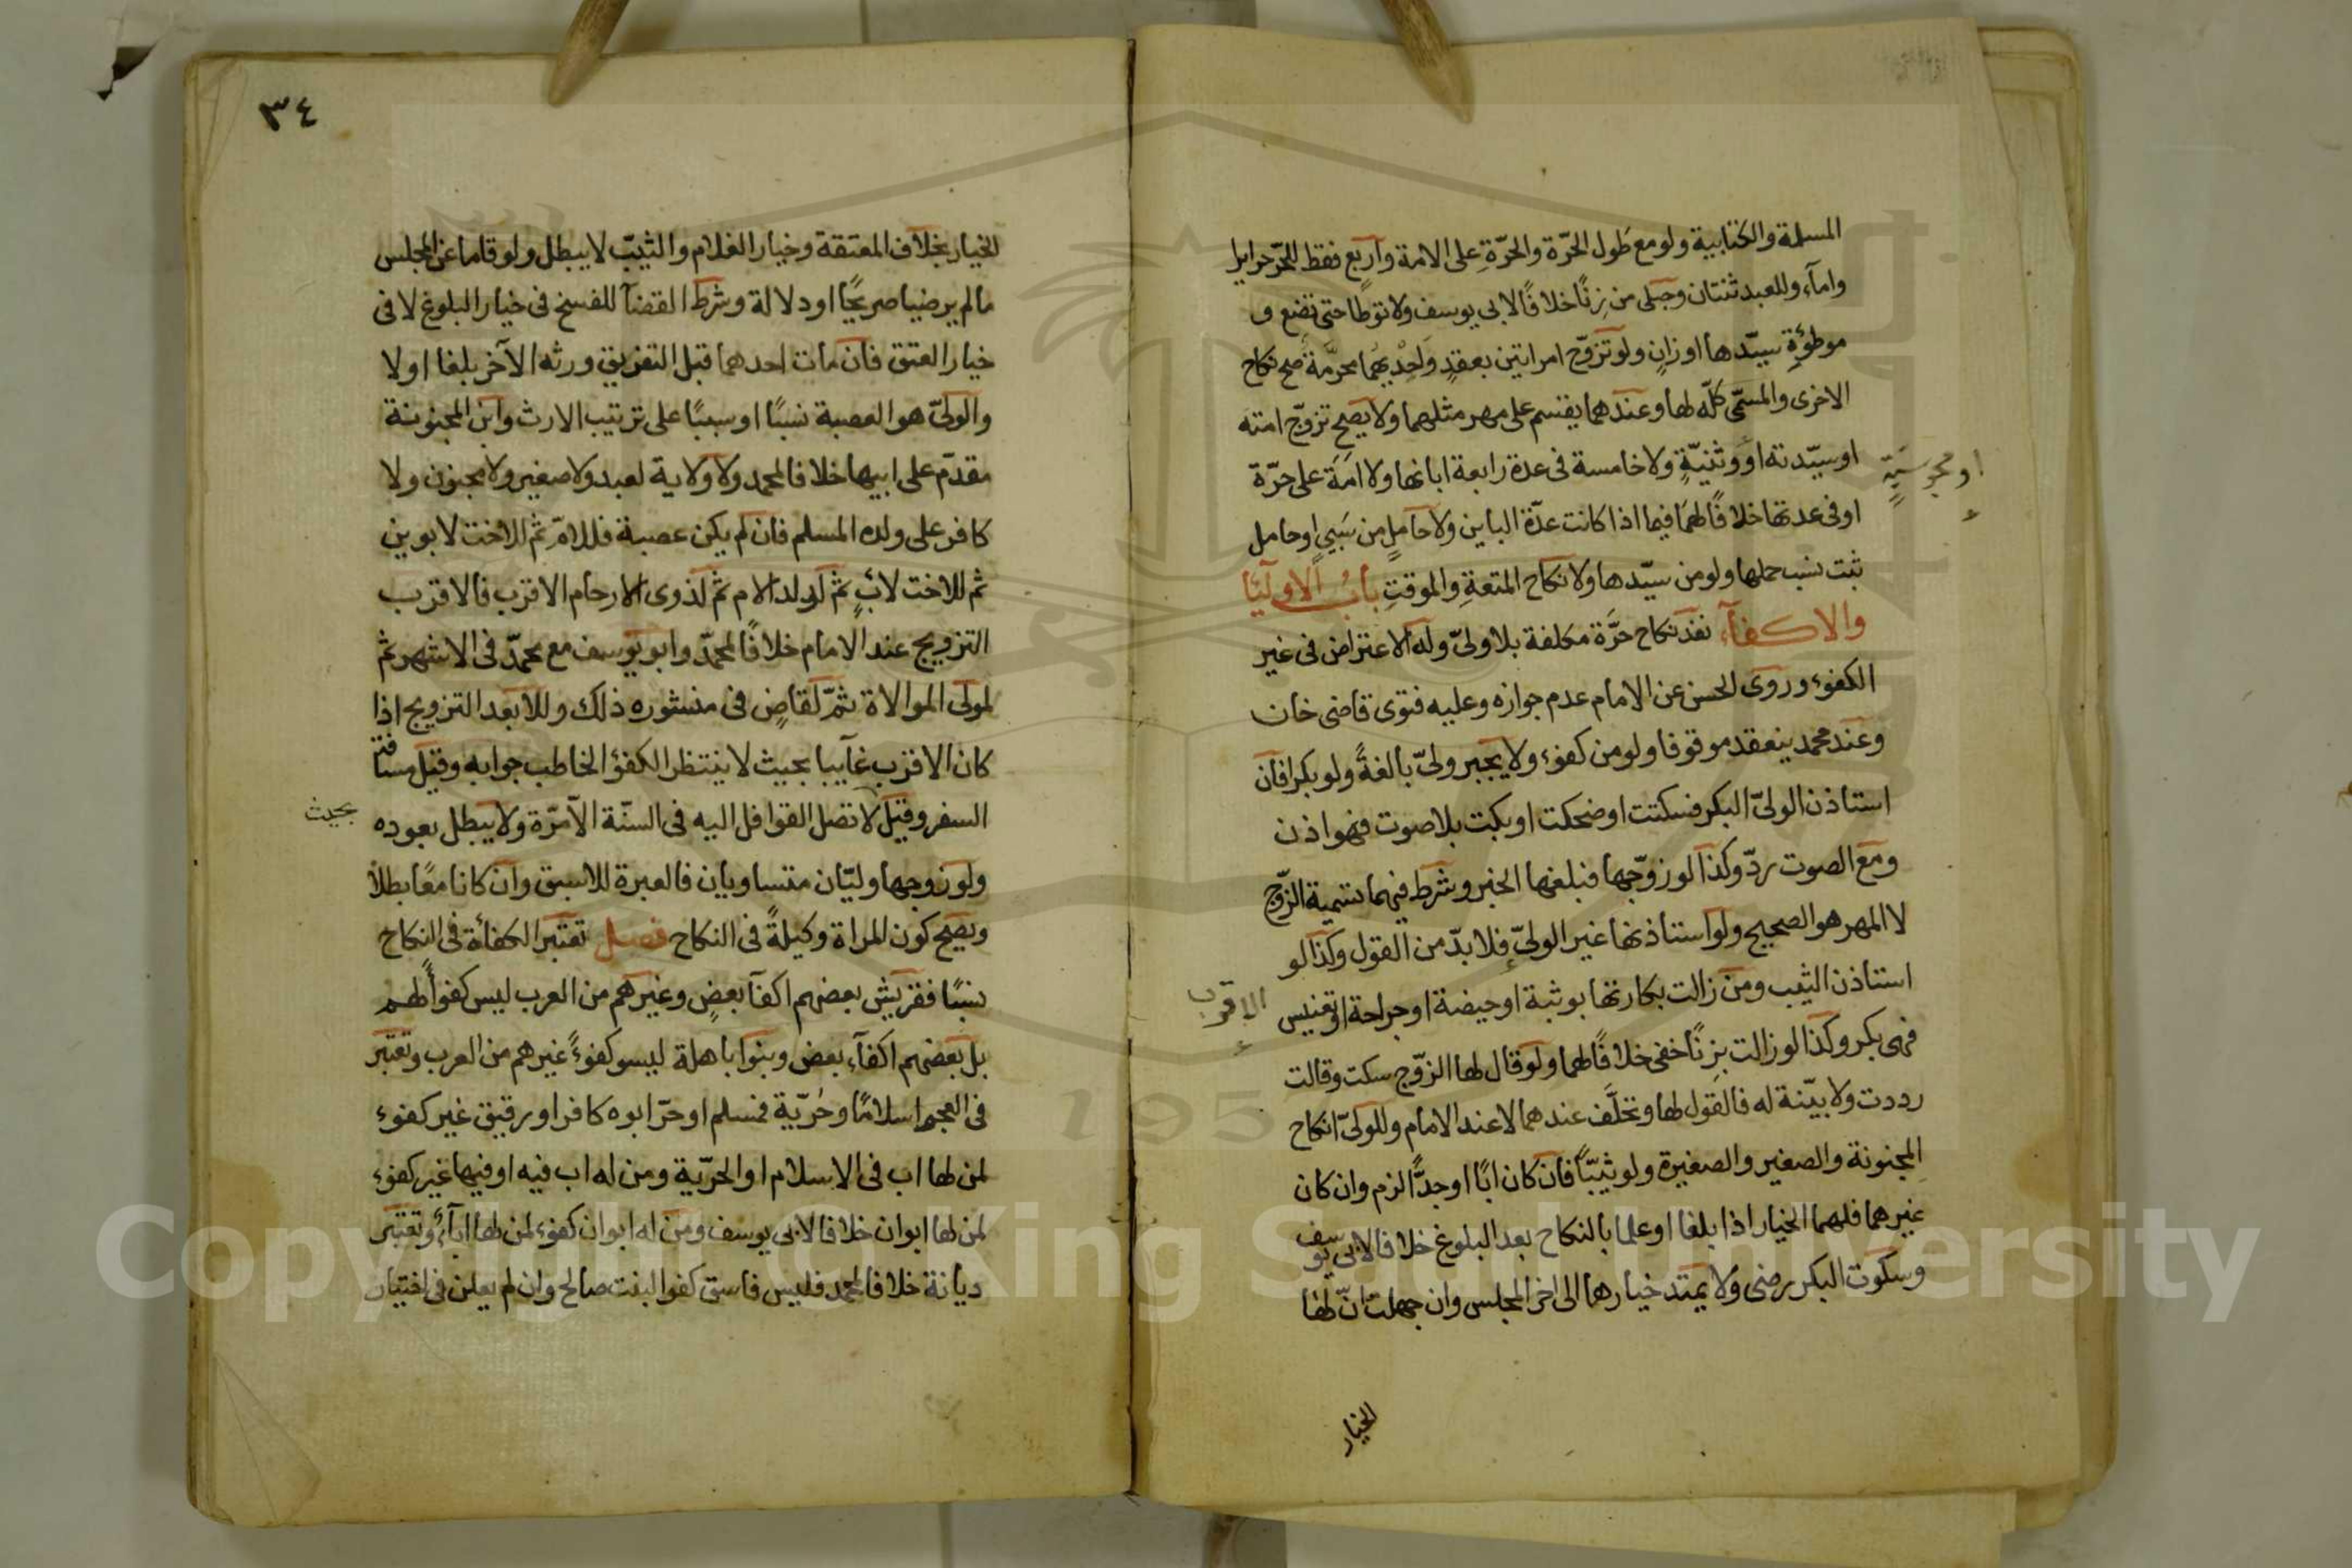 المسلمة والكتابية ولو مع طَول الحرّة والحرّةِ على الامة وأربع فقط للحرّ حراير
وامآء وللعبد ثنتان وحبلى من زنًا خلافًا لابى يوسف ولا توطأ حتى تضع و
موطؤةِ سيّدها او زانٍ ولو تزوّج امراتين بعقدٍ واحديهما محرّمة صح نكاح
الاخرى والمسمّى كلّه لها وعندهما يقسم على مهر مثلهما ولا يصح تزوّج امته
او سيّدته او وثنيّةٍ ولا خامسة فى عدة رابعة ابانها ولا امَة على حرّة
او مجوسيّةٍ
او فى عدتها خلافًا لهما فيما اذا كانت عدّة الباين ولا حاملٍ من سَبيٍ او حامل
ثبت نسب حملها ولو من سيّدها ولا نكاح المتعةِ والموقتِ بابُ الاوليآ
والاكفآء نفذ نكاح حرّة مكلفة بلا ولىّ وله الاعتراض فى غير
الكفؤ وروى الحسن عن الامام عدم جوازه وعليه فتوى قاضى خان
وعند محمد ينعقد موقوفا ولو من كفوء ولا يجبر ولىّ بالغةً ولو بكرا فان
استاذن الولىّ البكر فسكتت او ضحكت او بكت بلا صوت فهو اذن
ومع الصوت ردّ وكذا لو زوّجها فبلغها الخبر وشرط فيهما تسمية الزّوج
لا المهر هو الصحيح ولو استاذنها غير الولىّ فلا بدّ من القول وكذا لو
الاقرب
استاذن الثيب ومن زالت بكارتها بوثبة او حيضة او جراحة او تعنيس
فهى بكر وكذا لو زالت بزِنًا خفى خلافًا لهما ولو قال لها الزّوج سكت وقالت
رددت ولا بيّنة له فالقول لها وتحلَّف عندهما لا عند الامام وللولىّ انكاح
المجنونة والصغير والصغيرة ولو ثيّبًا فان كان ابًا او جدًّا لزم وان كان
غيرهما فلهما الخيار اذا بلغا او علما بالنكاح بعد البلوغ خلافا لابى يوسف
وسكوت البكر رضى ولا يمتد خيارهما الى اخر المجلس وان جهلت انّ لها
الخيار
٣٤
الخيار بخلاف المعتقة وخيار الغلام والثيّب لا يبطل ولو قاما عن المجلس
مالم يرضيا صريحًا او دلالة وشرط القضآ للفسخ فى خيار البلوغ لا فى
خيار العتق فان مات احدهما قبل التفريق ورثه الآخر بلغا اولا
والولىّ هو العصبة نسبًا او سببًا على ترتيب الارث وابن المجنونة
مقدّم على ابيها خلافا لمحمد ولا ولاية لعبد ولا صغير ولا مجنون ولا
كافر على ولده المسلم فان لم يكن عصبة فللامّ ثم للاخت لابوين
ثم للاخت لابٍ ثم لولد الام ثم لذوى الارحام الاقرب فالاقرب
التزويج عند الامام خلافًا لمحمدّ وابو يوسف مع محمدّ فى الاشهر ثم
لمولى الموالاة ثمّ لقاضٍ فى منشوره ذلك وللابعد التزويج اذا
كان الاقرب غآيبا بحيث لا ينتظر الكفؤ الخاطب جوابه وقيل مسافة
السفر وقيل لا تصل القوافل اليه فى السنّة الا مرّة ولا يبطل بعوده
بحيث
ولو زوجها وليّان متساويان فالعبرة للاسبق وان كانا معًا بطلا
ويصح كون المراة وكيلةً فى النكاح فصل تعتبر الكفائة فى النكاح
نسبًا فقريش بعضهم اكفآ بعضٍ وغيرهم من العرب ليس كفوأً لهم
بل بعضهم اكفآء بعض وبنوا باهلة ليسو كفوءً غيرهم من العرب وتعتبر
فى العجم اسلامًا وحُريّة فمسلم او حرّ ابوه كافر او رقيق غير كفوء
لمن لها اب فى الاسلام او الحريّة ومن له اب فيه او فيها غير كفوء
لمن لها ابوان خلافا لابى يوسف ومن له ابوان كفوء لمن لها ابآء وتعتبر
ديانة خلافا لمحمد فليس فاسق كفوا لبنت صالح وان لم يعلن فى اختيار
Copyright © King Saud University
195